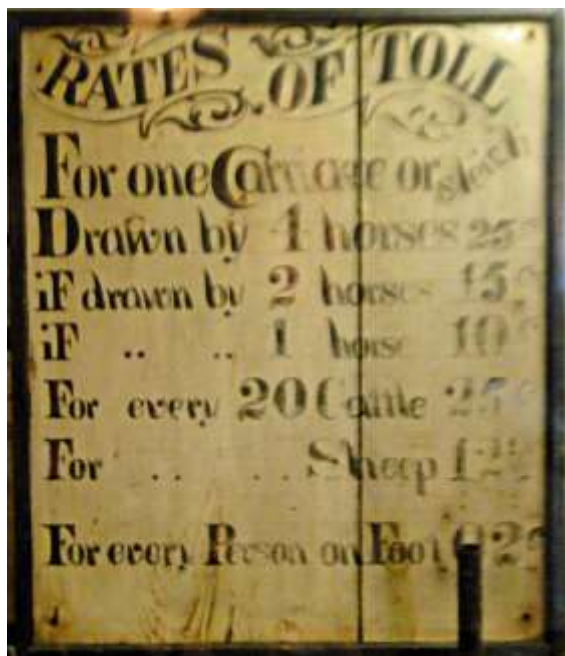 RATES OF TOLL
For one Carriage or sleigh
Drawn by 4 horses 25
iF drawn by 2 horses 15
iF .. .. 1 horse 10
For every 20 Cattle 25
For .. .. Sheep
For every Person on Foot 02